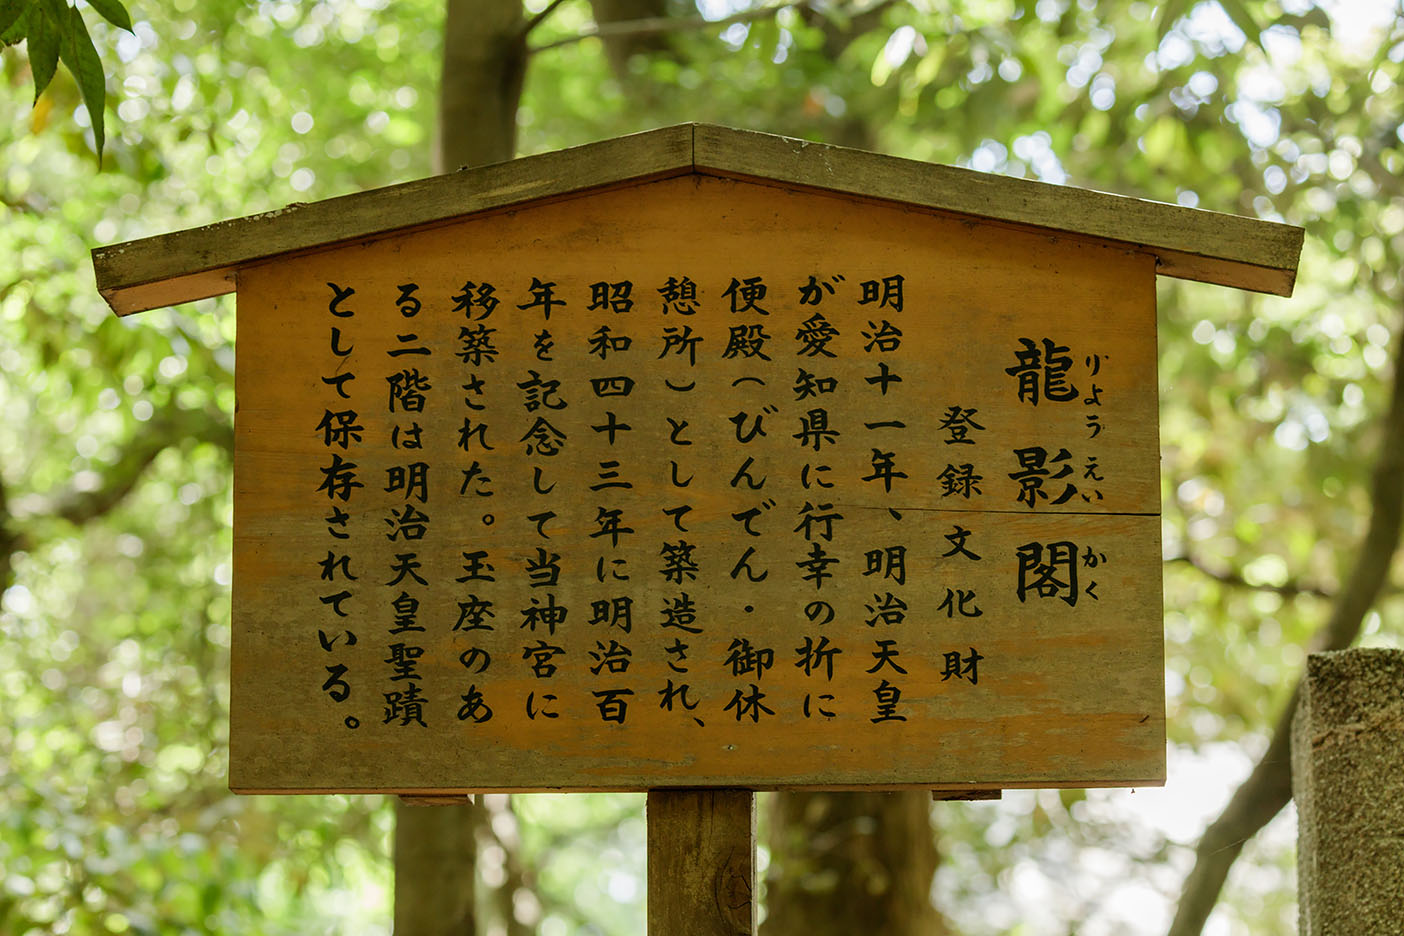 龍影閣
りようえいかく
登録文化財
明治十一年、明治天皇
が愛知県に行幸の折に
便殿(びんでん・御休
憩所)として築造され、
昭和四十三年に明治百
年を記念して当神宮に
移築された。玉座のあ
る二階は明治天皇聖蹟
として保存されている。